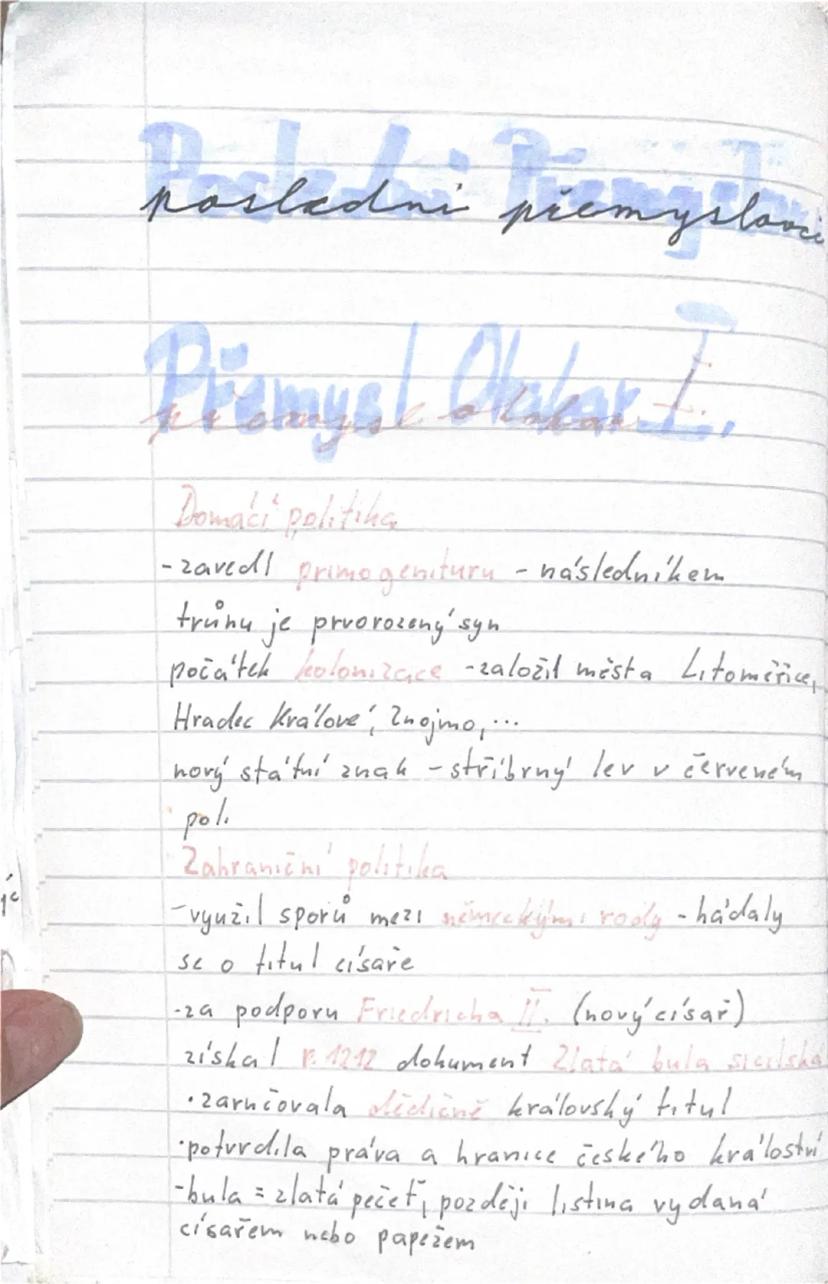 Poslední Přemyslovci
poslední přemyslovci
Přemysl Otakar I.
přemysl otakar I.
Domácí politika
-zavedl primogenituru - následníkem
trůnu je prvorozený syn
počátek kolonizace - založil města Litoměřice,
Hradec Králové, Znojmo,...
nový státní znak - stříbrný lev v červeném
poli
Zahraniční politika
-využil sporů mezi německými rody - hádaly
se o titul císaře
-za podporu Friedricha II. (nový císař)
získal r. 1212 dokument Zlatá bula sicilská
•zaručovala dědičně královský titul
•potvrdila práva a hranice českého králoství
-bula = zlatá pečeť, později listina vydaná
císařem nebo papežem